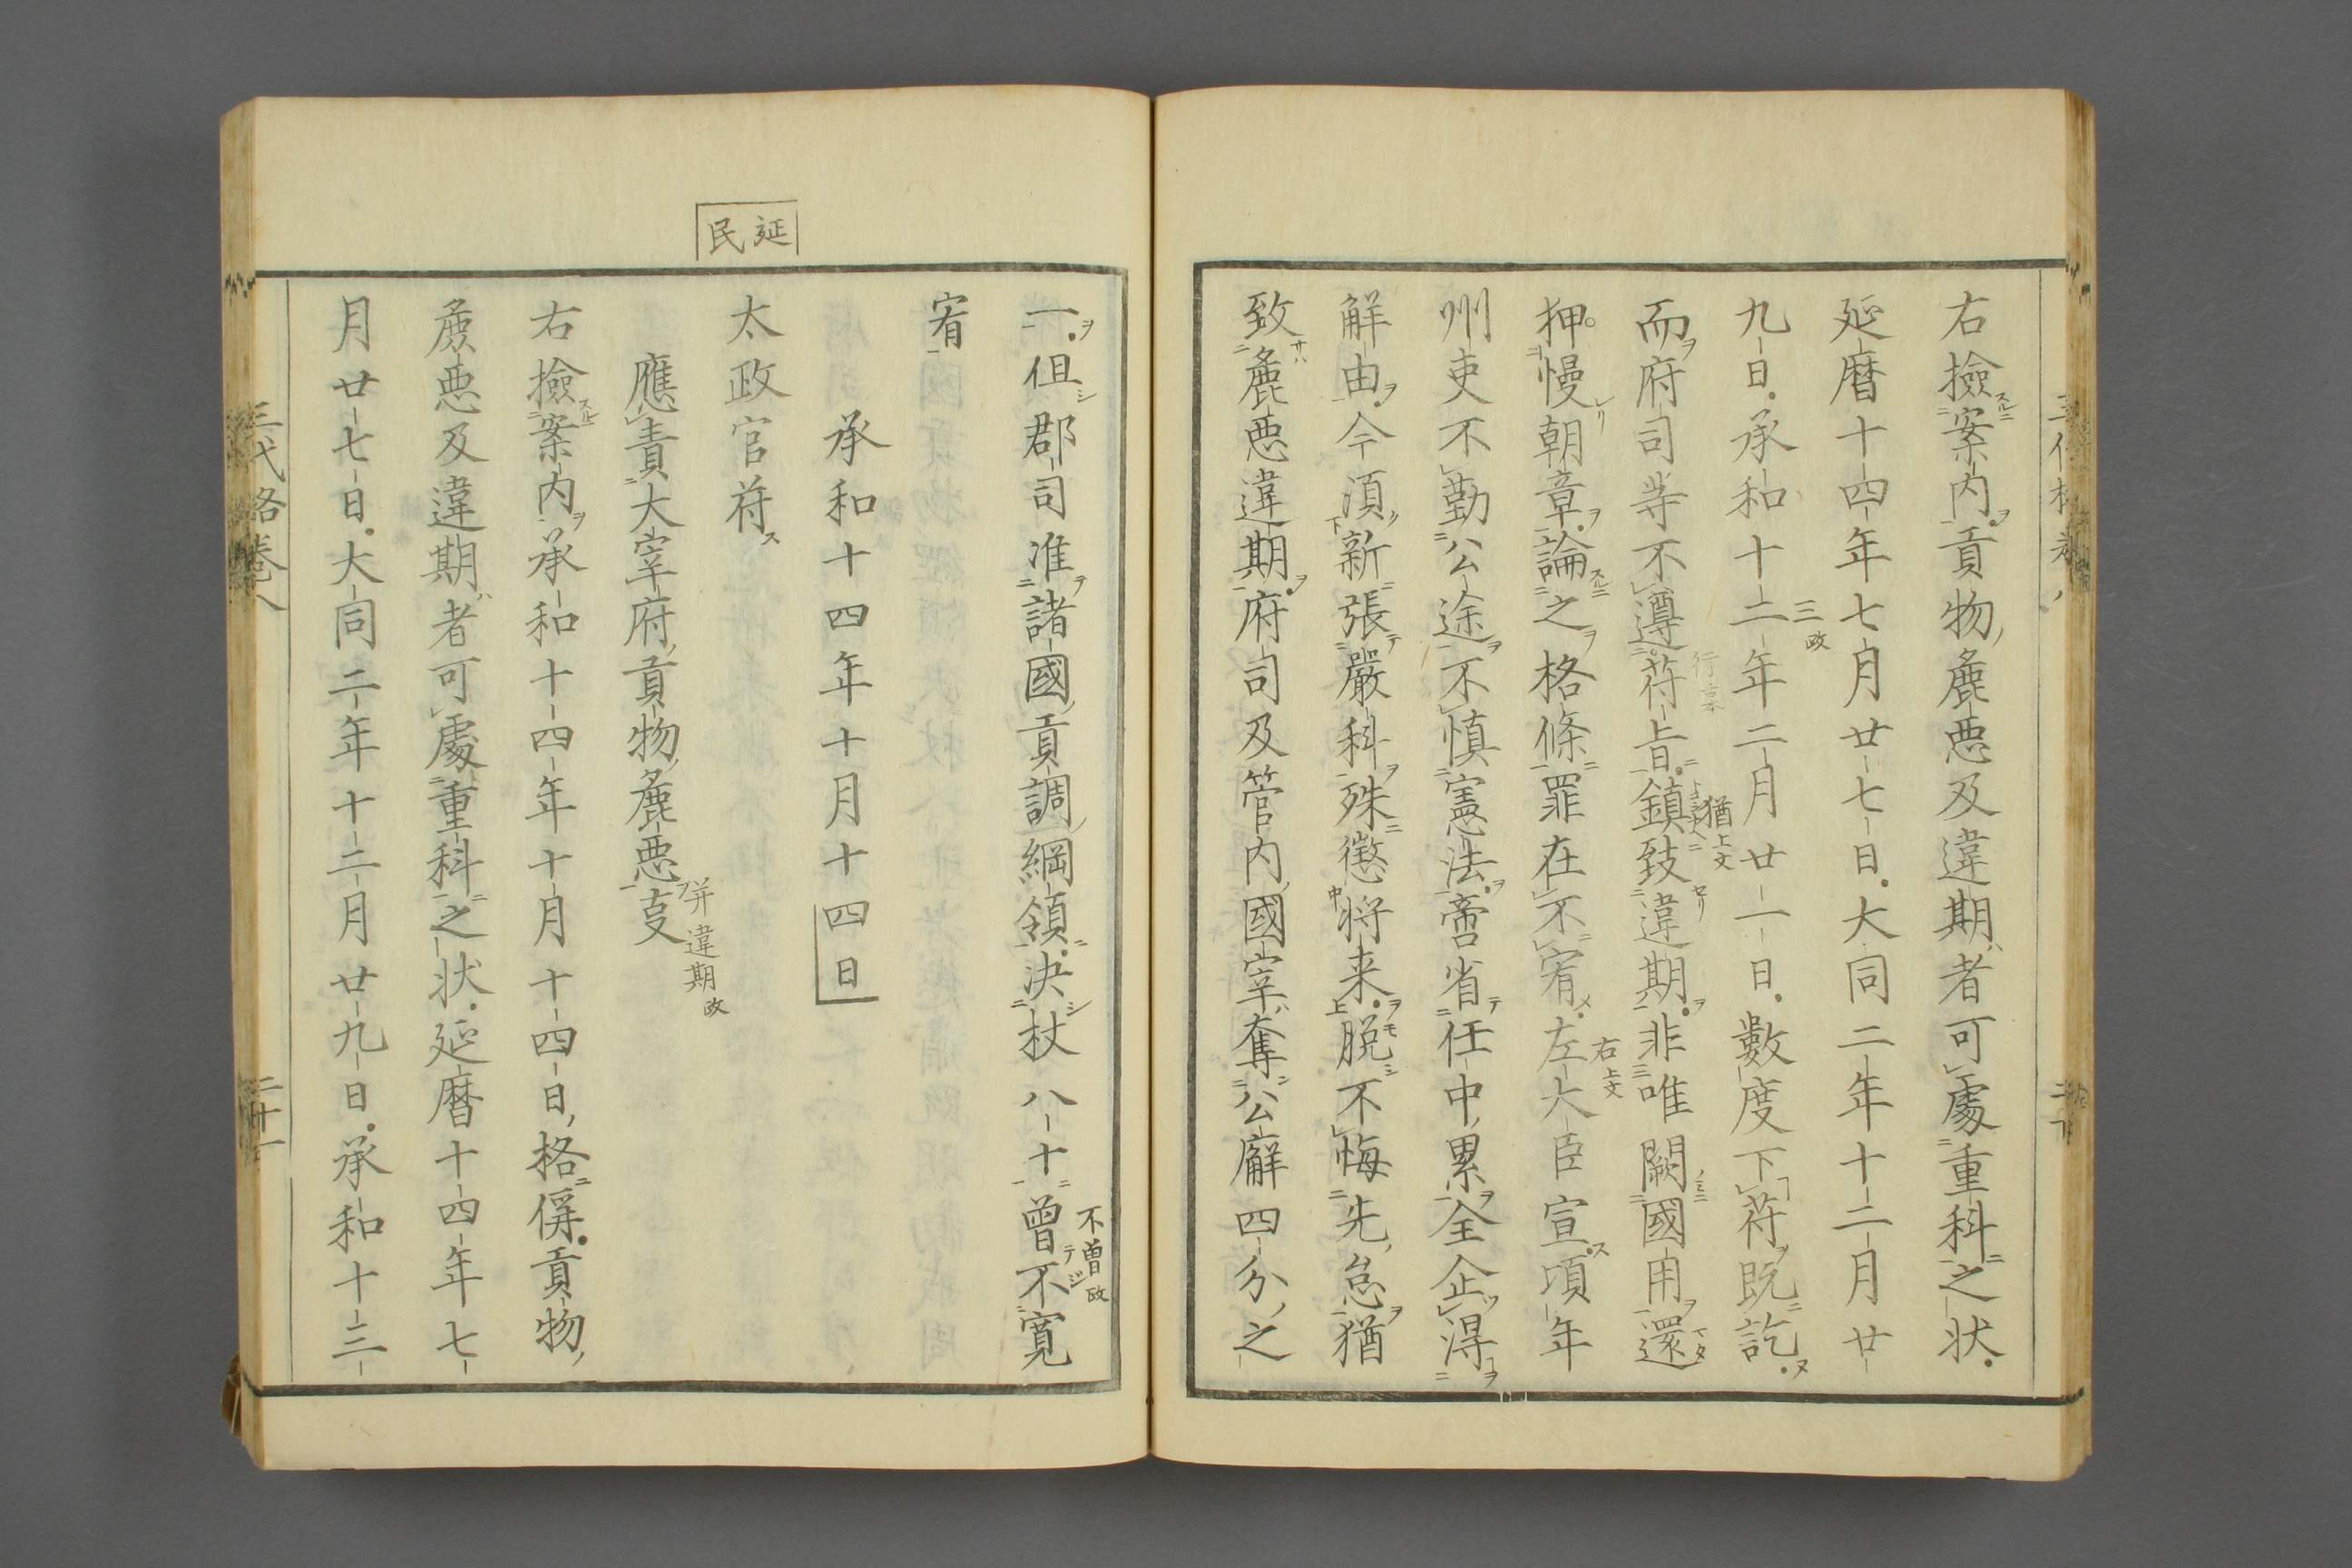 右撿案内貢物麁悪及違期者可處重科之状
延暦十四年七月廿七日大同二年十二月廿
九日承和十二年二月廿一日數度下符既訖
三政
而府司等不遵符旨鎮致違期非唯闕國用還
行京本
猶上文
狎慢朝章論之格條罪在不宥左大臣宣頃年
右上文
州吏不勤公途不慎憲法啻省任中累全企得
解由今須新張嚴科殊懲将来脱不悔先怠猶
致麁悪違期府司及管内國宰奪公廨四分之
一但郡司准諸國貢調綱領決杖八十曾不寛
不曽政
宥
承和十四年十月十四日
延民
太政官符
應責大宰府貢物麁悪㕝
并違期政
右撿案内承和十四年十月十四日格偁貢物
麁悪及違期者可處重科之状延暦十四年七
月廿七日大同二年十二月廿九日承和十三
三代格巻八
二十一